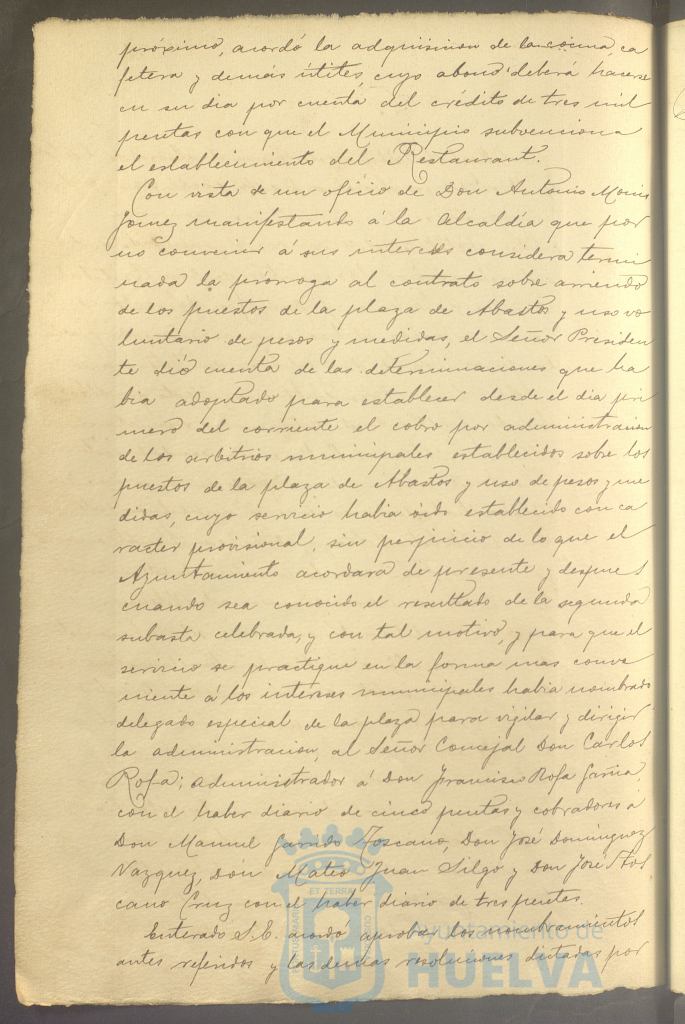 próximo, acordó la adquisicion de la cocina, ca
fetera y demás útiles, cuyo abono deberá hacerse
en su dia por cuenta del crédito de tres mil
pesetas con que el Municipio subvenciona
el establecimiento del Restaurant.
Con vista de un oficio de Don Antonio
Gomez manifestando á la Alcaldía que por
no convenir á sus intereses considera termi
nada la prórroga al contrato sobre arriendo
de los puestos de la plaza de Abastos y uso vo
luntario de pesos y medidas, el Señor Presiden
te dió cuenta de las determinaciones que ha
bia adoptado para establecer desde el dia pri
mero del corriente el cobro por administracion
de los arbitrios municipales establecidos sobre los
puestos de la plaza de Abastos y uso de pesos y me
didas, cuyo servicio habia sido establecido con ca
racter provisional, sin perjuicio de lo que el
Ayuntamiento acordara de presente y despues
cuando sea conocido el resultado de la segunda
subasta celebrada, y con tal motivo, y para que el
servicio se practique en la forma mas conve
niente á los intereses municipales habia nombrado
delegado especial de la plaza para vigilar y dirigir
la administracion, al Señor Concejal Don Carlos
Rofa; administrador á Don Francisco Rofa
con el haber diario de cinco pesetas y cobradores á
Don Manuel Garrido Toscano, Don José Dominguez
Vazquez, Don Mateo Juan Silgo y Don José Tos
cano Cruz con el haber diario de tres pesetas.
Enterado S.E. acordo aprobar los nombramientos
antes referidos y las demas resoluciones dictadas por
ET TERRA
Ayuntamiento de
HUELVA